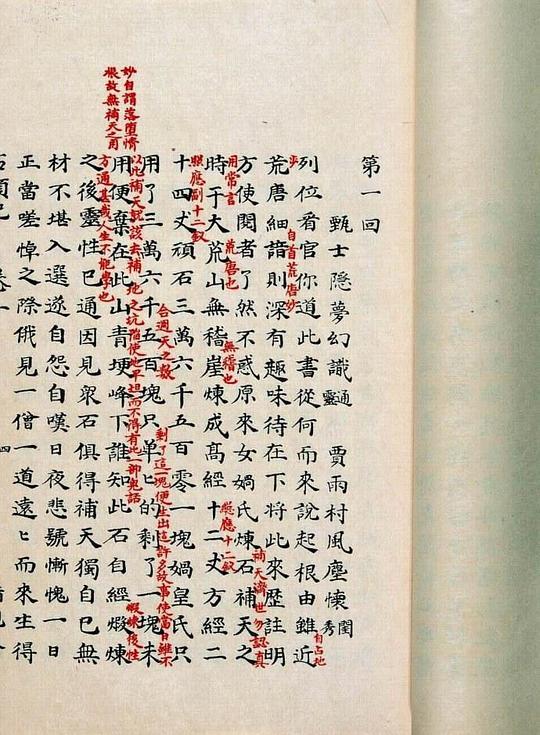 第一回
甄士隱夢幻識通靈　賈雨村風塵懷閨秀
列位看官你道此書從何而來說起根由雖近
自占地步
自首荒唐妙
荒唐細諳則深有趣味待在下將此來歷註明
方使閱者了然不惑原來女媧氏煉石補天之
補天濟世勿認真
用常言
時于大荒山無稽崖煉成高經十二丈方經二
荒唐也
無稽也
照應十二釵
十四丈頑石三萬六千五百零一塊媧皇氏只
照應副十二釵
用了三萬六千五百塊只单匕的剩了一塊未
合週天之數
剩了這一塊便生出這許多故事使當日雖不
以此補天就該去補地之坑陷使地平坦而不得有此一部鬼話
用便棄在此山青埂峰下誰知此石自經煅煉
妙自謂落墮情
根故無補天之用
之後靈性已通因見眾石俱得補天獨自己無
煅煉後性
方通甚哉人生不能學也
材不堪入選遂自怨自嘆日夜悲號慚愧一日
正當嗟悼之際俄見一僧一道遠匕而來生得